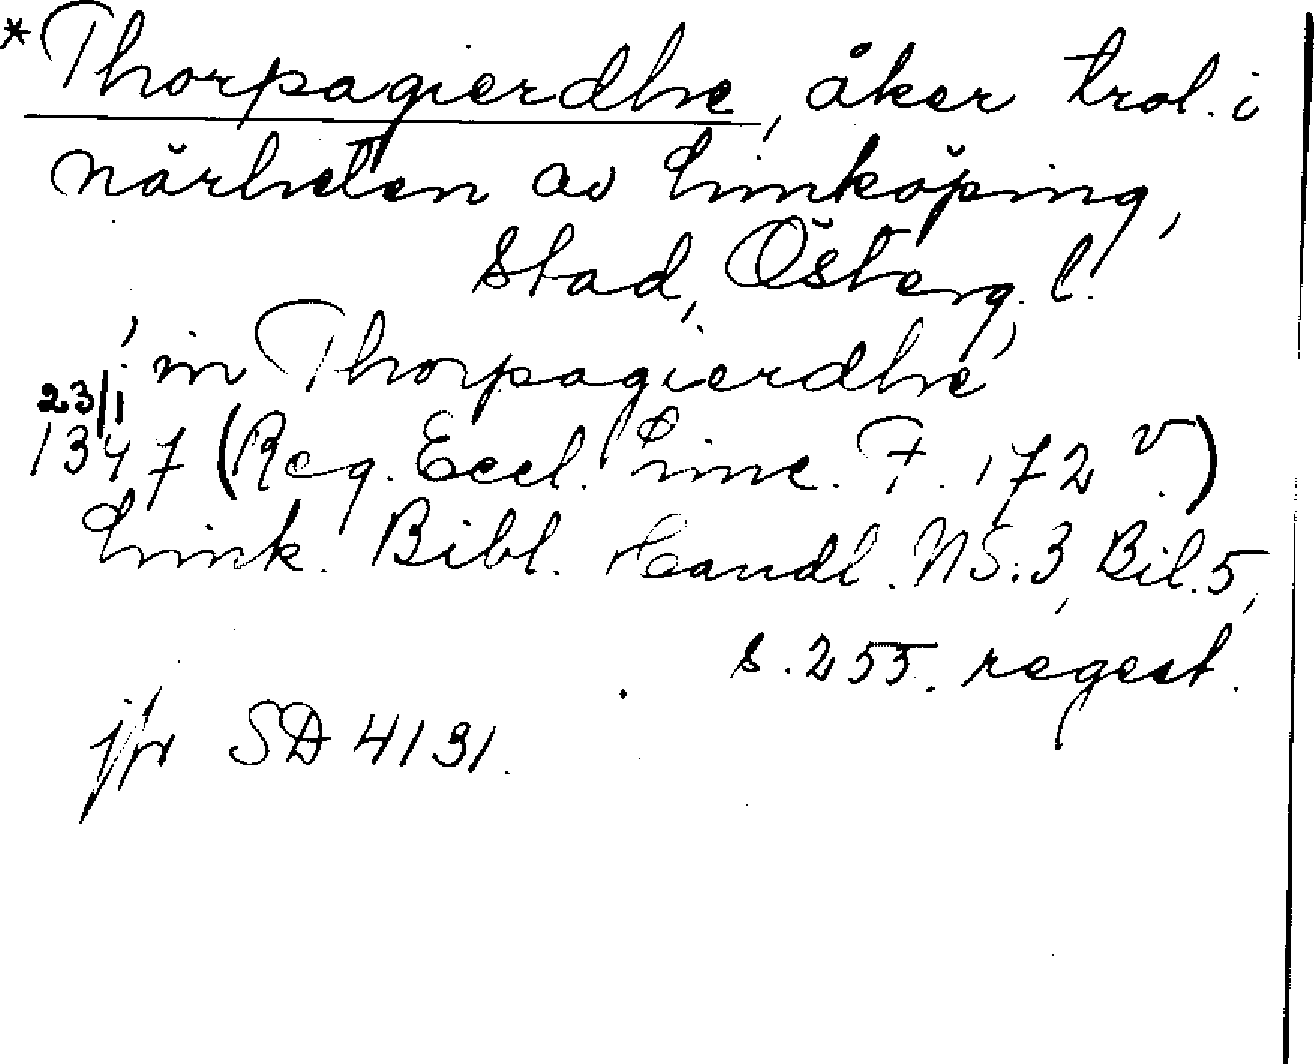 *Thorpagierdhe, åker trol. i
närheten av Linköping,
stad, Österg. l.
, in Thorpagierdhe,
23/1
1347 (Reg. Eccl. Linc. F. 172 v.)
Link. Bibl. Handl. NS:3, Bil. 5,
s. 255. regest.
jfr SD 4131.